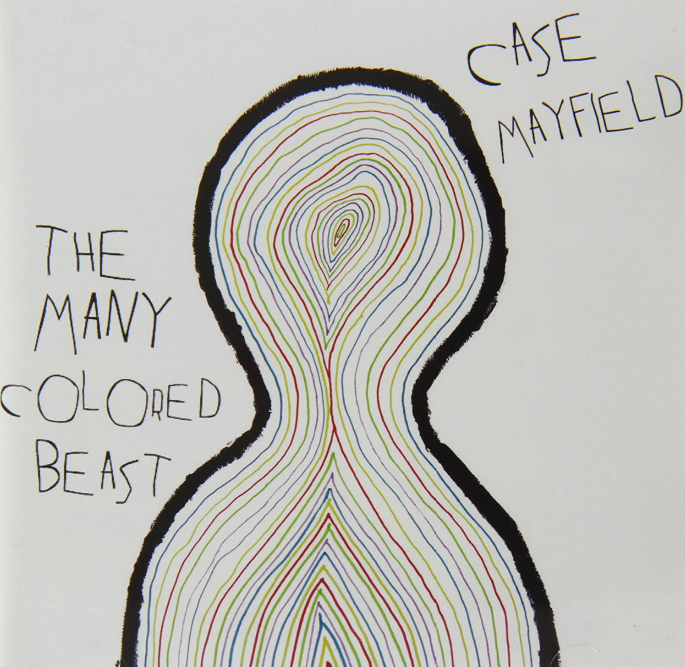 CASE
MAYFIELD
THE
MANY
COLORED
BEAST